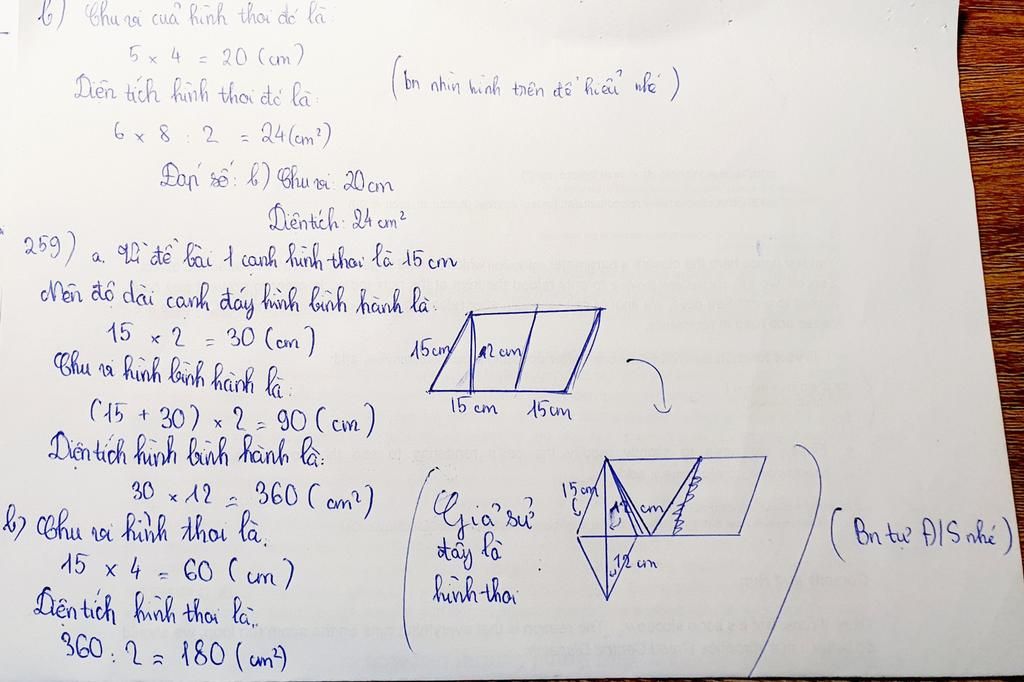 b) Chu vi cuả hình thoi đó là
5 × 4 = 20 (cm)
Diện tích hình thoi đó là:
(bn nhìn hình trên để hiểu nhé)
6 × 8 : 2 = 24 (cm²)
Đáp số: b) Chu vi: 20 cm
Diện tích: 24 cm²
259) a. Vì đề bài 1 cạnh hình thoi là 15 cm
Nên độ dài cạnh đáy hình bình hành là:
15 × 2 = 30 (cm)
Chu vi hình bình hành là:
(15 + 30) × 2 = 90 (cm)
Diện tích hình bình hành là:
30 × 12 = 360 (cm²)
15 cm
12 cm
15 cm
15 cm
b) Chu vi hình thoi là:
15 × 4 = 60 (cm)
Diện tích hình thoi là:
360 : 2 = 180 (cm²)
(Giả sử
đây là
hình thoi
15 cm
12 cm
12 cm
)
(Bn tự Đ/S nhé)